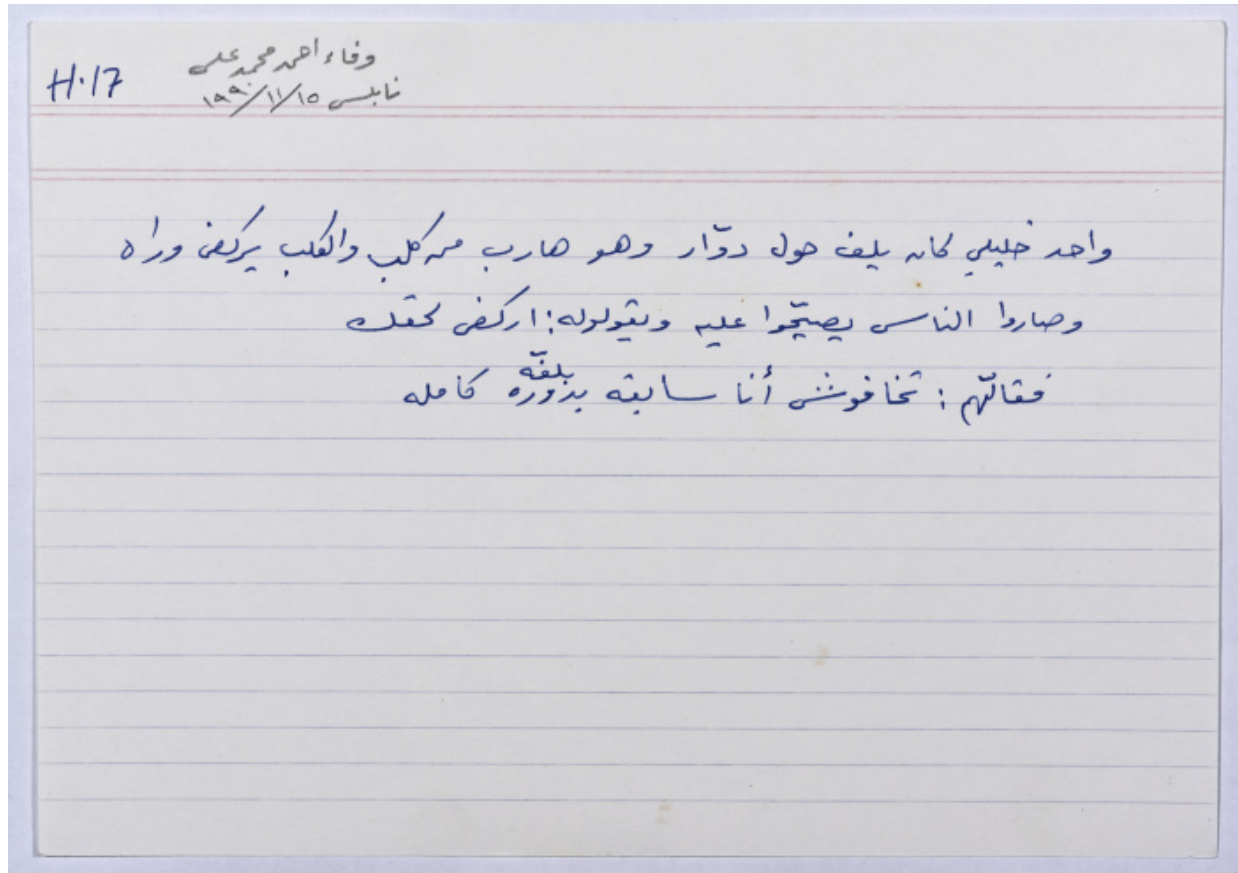 H.17
وفاء احمد محمد علي
نابلس ١٥/١١/١٩٩٠
واحد خليلي كان يلف حول دوّار وهو هارب من كلب والكلب يركض وراه
وصاروا الناس يصيّحوا عليه ويقولوله: اركض لحقك
بلفّه
فقالّهم: تخافوش أنا سابقه بدوره كامله